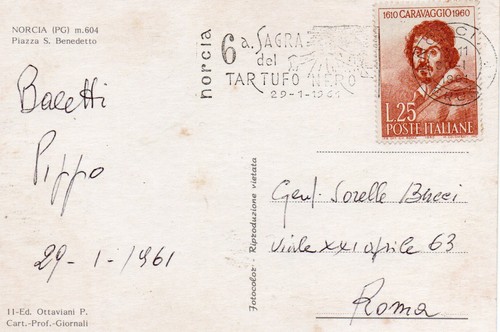 NORCIA (PG) m.604
Piazza S. Benedetto
norcia
6a. SAGRA
del
TARTUFO NERO
29-1-1961
1610 CARAVAGGIO 1960
L.25
POSTE ITALIANE
Baletti
Pippo
29-1-1961
Fotocolor - Riproduzione vietata
Gent. Sorelle Bucci
Viale XXI aprile 63
Roma
11-Ed. Ottaviani P.
Cart.-Prof.-Giornali